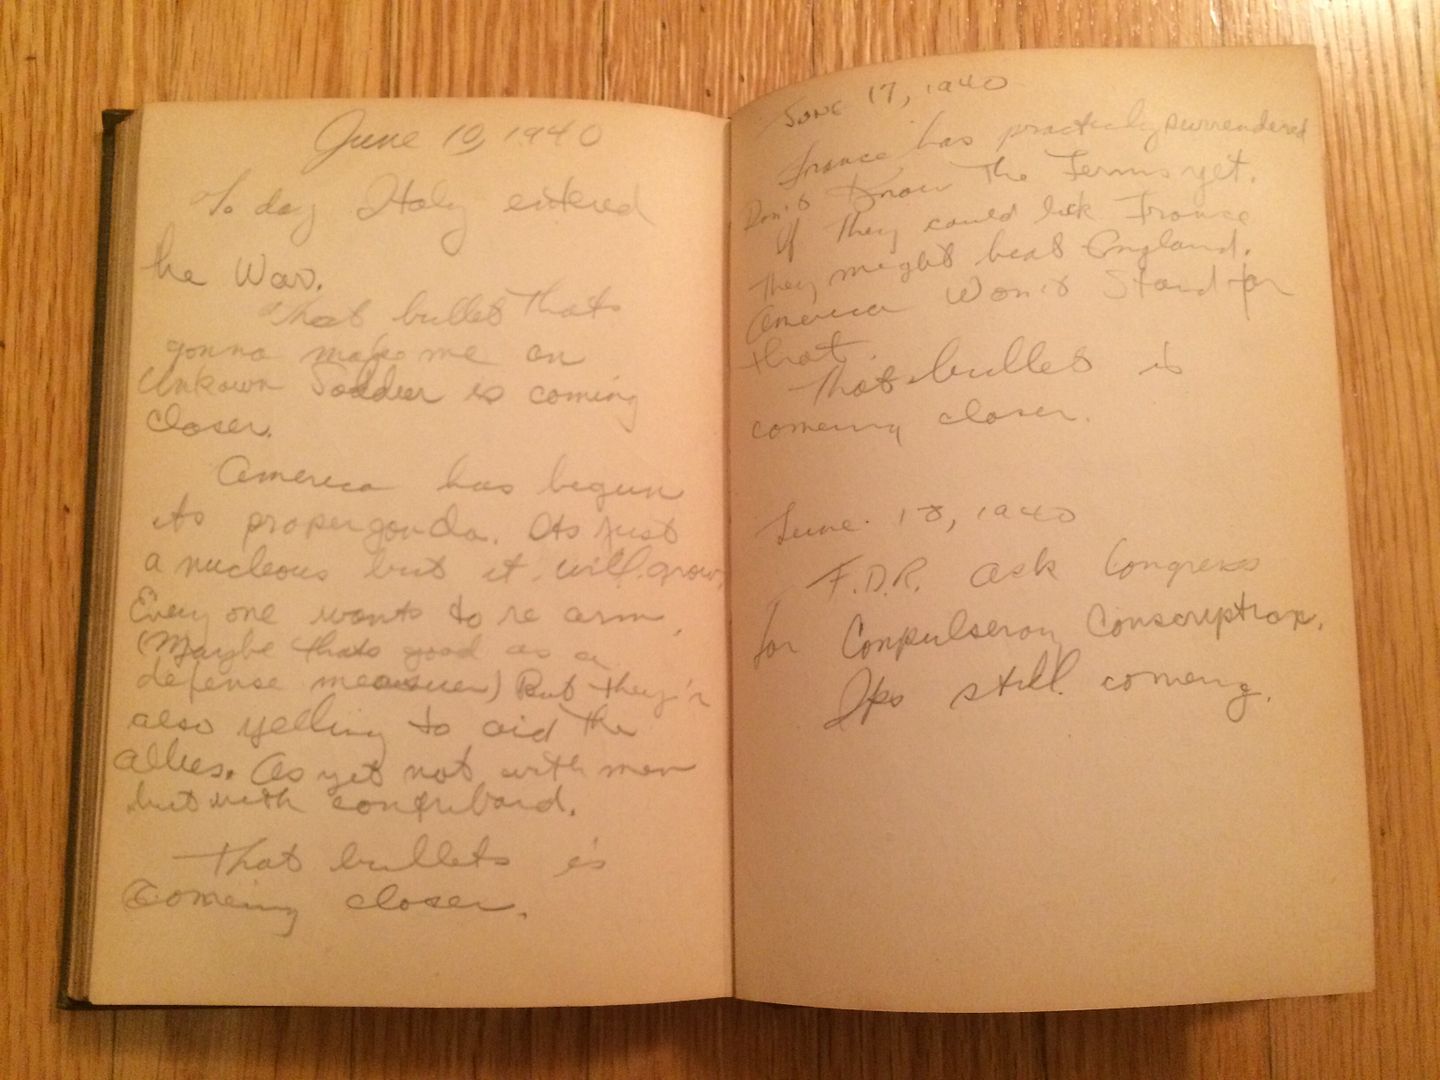 June 10, 1940
To day Italy entered
he War.
That bullet thats
gonna make me an
Unkown Soldier is coming
closer.
America has begun
its propergonda. Its just
a nucleous but it will grow,
Every one wants to re arm.
(Maybe thats good as a
defense measure) But they'r
also yelling to aid the
allies. As yet not with men
but with
That bullets is
Comeing closer.
June 17, 1940
France has practicly surrendered
Don't Know the Terms yet.
If They could lick France
They might beat England.
America Won't Stand for
that.
That bullet is
comeing closer.
June 18, 1940
F.D.R. ask Congress
for Conpulserory Conscription.
Its still comeing.